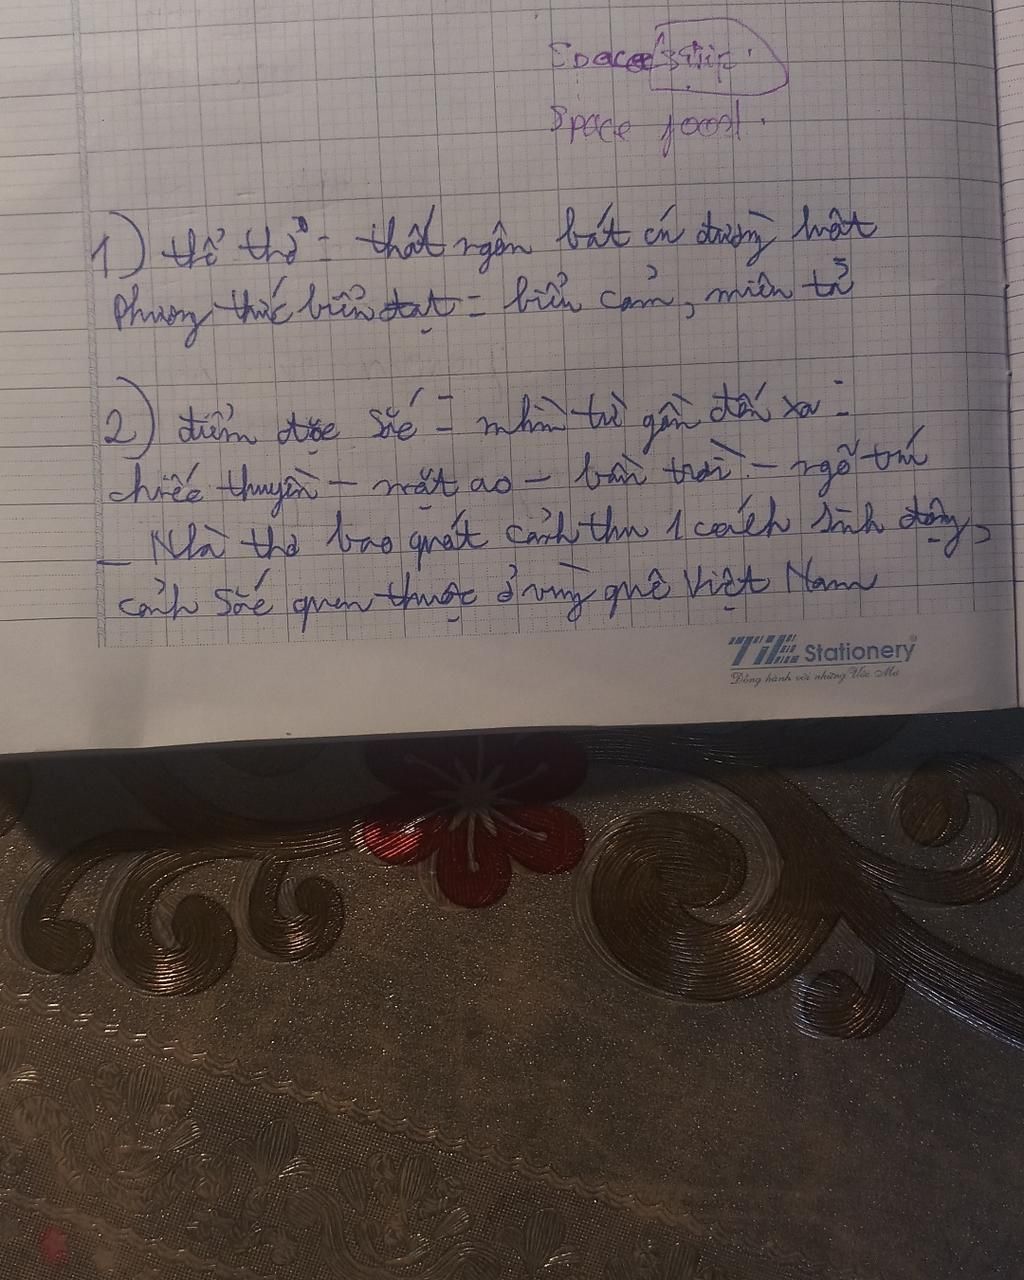 Space ship.
Space food.
1) thể thơ = thất ngôn bát cú đường luật
Phương thức biểu đạt = biểu cảm, miêu tả
2) điểm đặc sắc = nhìn từ gần đến xa =
chiếc thuyền - mặt ao - bầu trời - ngõ trúc
- Nhà thơ bao quát cảnh thu 1 cách sinh động,
cảnh sắc quen thuộc ở vùng quê Việt Nam
TiE Stationery
Đồng hành với những Ước Mơ